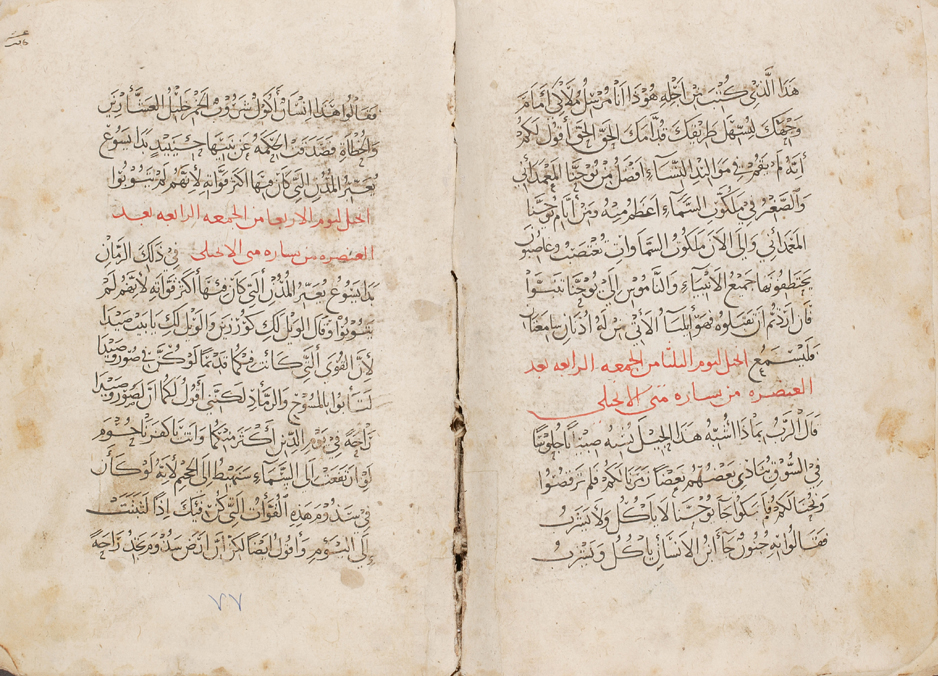 هذا الذي كتب من اجله هوذا انا مرسل ملاكي امام
وجهك ليسهل طريقك قدامك الحق الحق أقول لكم
أنه لم يقم في مواليد النساء افضل من يوحنا المعمداني
والصغير في ملكوت السماء أعظم منه ومن أيام يوحنا
المعمداني والى الان ملكوت السماوات تغتصب وغاصبون
يختطفونها جميع الانبياء والناموس الى يوحنا تنبوا
فان اردتم أن تقبلوه فهو ايليا الآتي من له اذنان سامعتان
فليسمع انجيل ليوم الثلثا من الجمعه الرابعه بعد
العنصره من بشاره متى الانجيلي
قال الرب بماذا اشبه هذا الجيل يشبه صبيانا جلوسا
في السوق ينادي بعضهم بعضا زمرنا لكم فلم ترقصوا
ونحنا لكم فلم تبكوا جا يوحنا لا ياكل ولا يشرب
فقالوا به جنون جا أبن الانسان ياكل ويشرب
فقالوا هذا انسان أكول شروب الخمر خليل العشارين
والخطاة فصدقت الحكمه عن بنيها حينيذ بدا يسوع
يعير المدن التي كان فيها اكثر قواته لانهم لم يتوبوا
انجيل ليوم الاربعا من الجمعه الرابعه بعد
العنصره من بشاره متى الانجيلي في ذلك الزمان
بدا يسوع يعير المدن التي كان فيها أكثر قواته لانهم لم
يتوبوا وقال الويل لك كورزين والويل لك يا بيت صيدا
لان القوى التي كانت فيكما قديما لو كن في صور وصيدا
لتابوا بالمسوح والرماد لكني أقول لكما ان لصور وصيدا
راحة في يوم الدين أكثر منكما وانت يا كفرناحوم
لو ارتفعت الى السماء ستهبط الى الجحيم لأنه لو كان
في سدوم هذه القوات التي كن فيك اذا لثبتت
إلى اليوم وأقول ايضا لكم ان ارض سدوم تجد راحة
٧٧